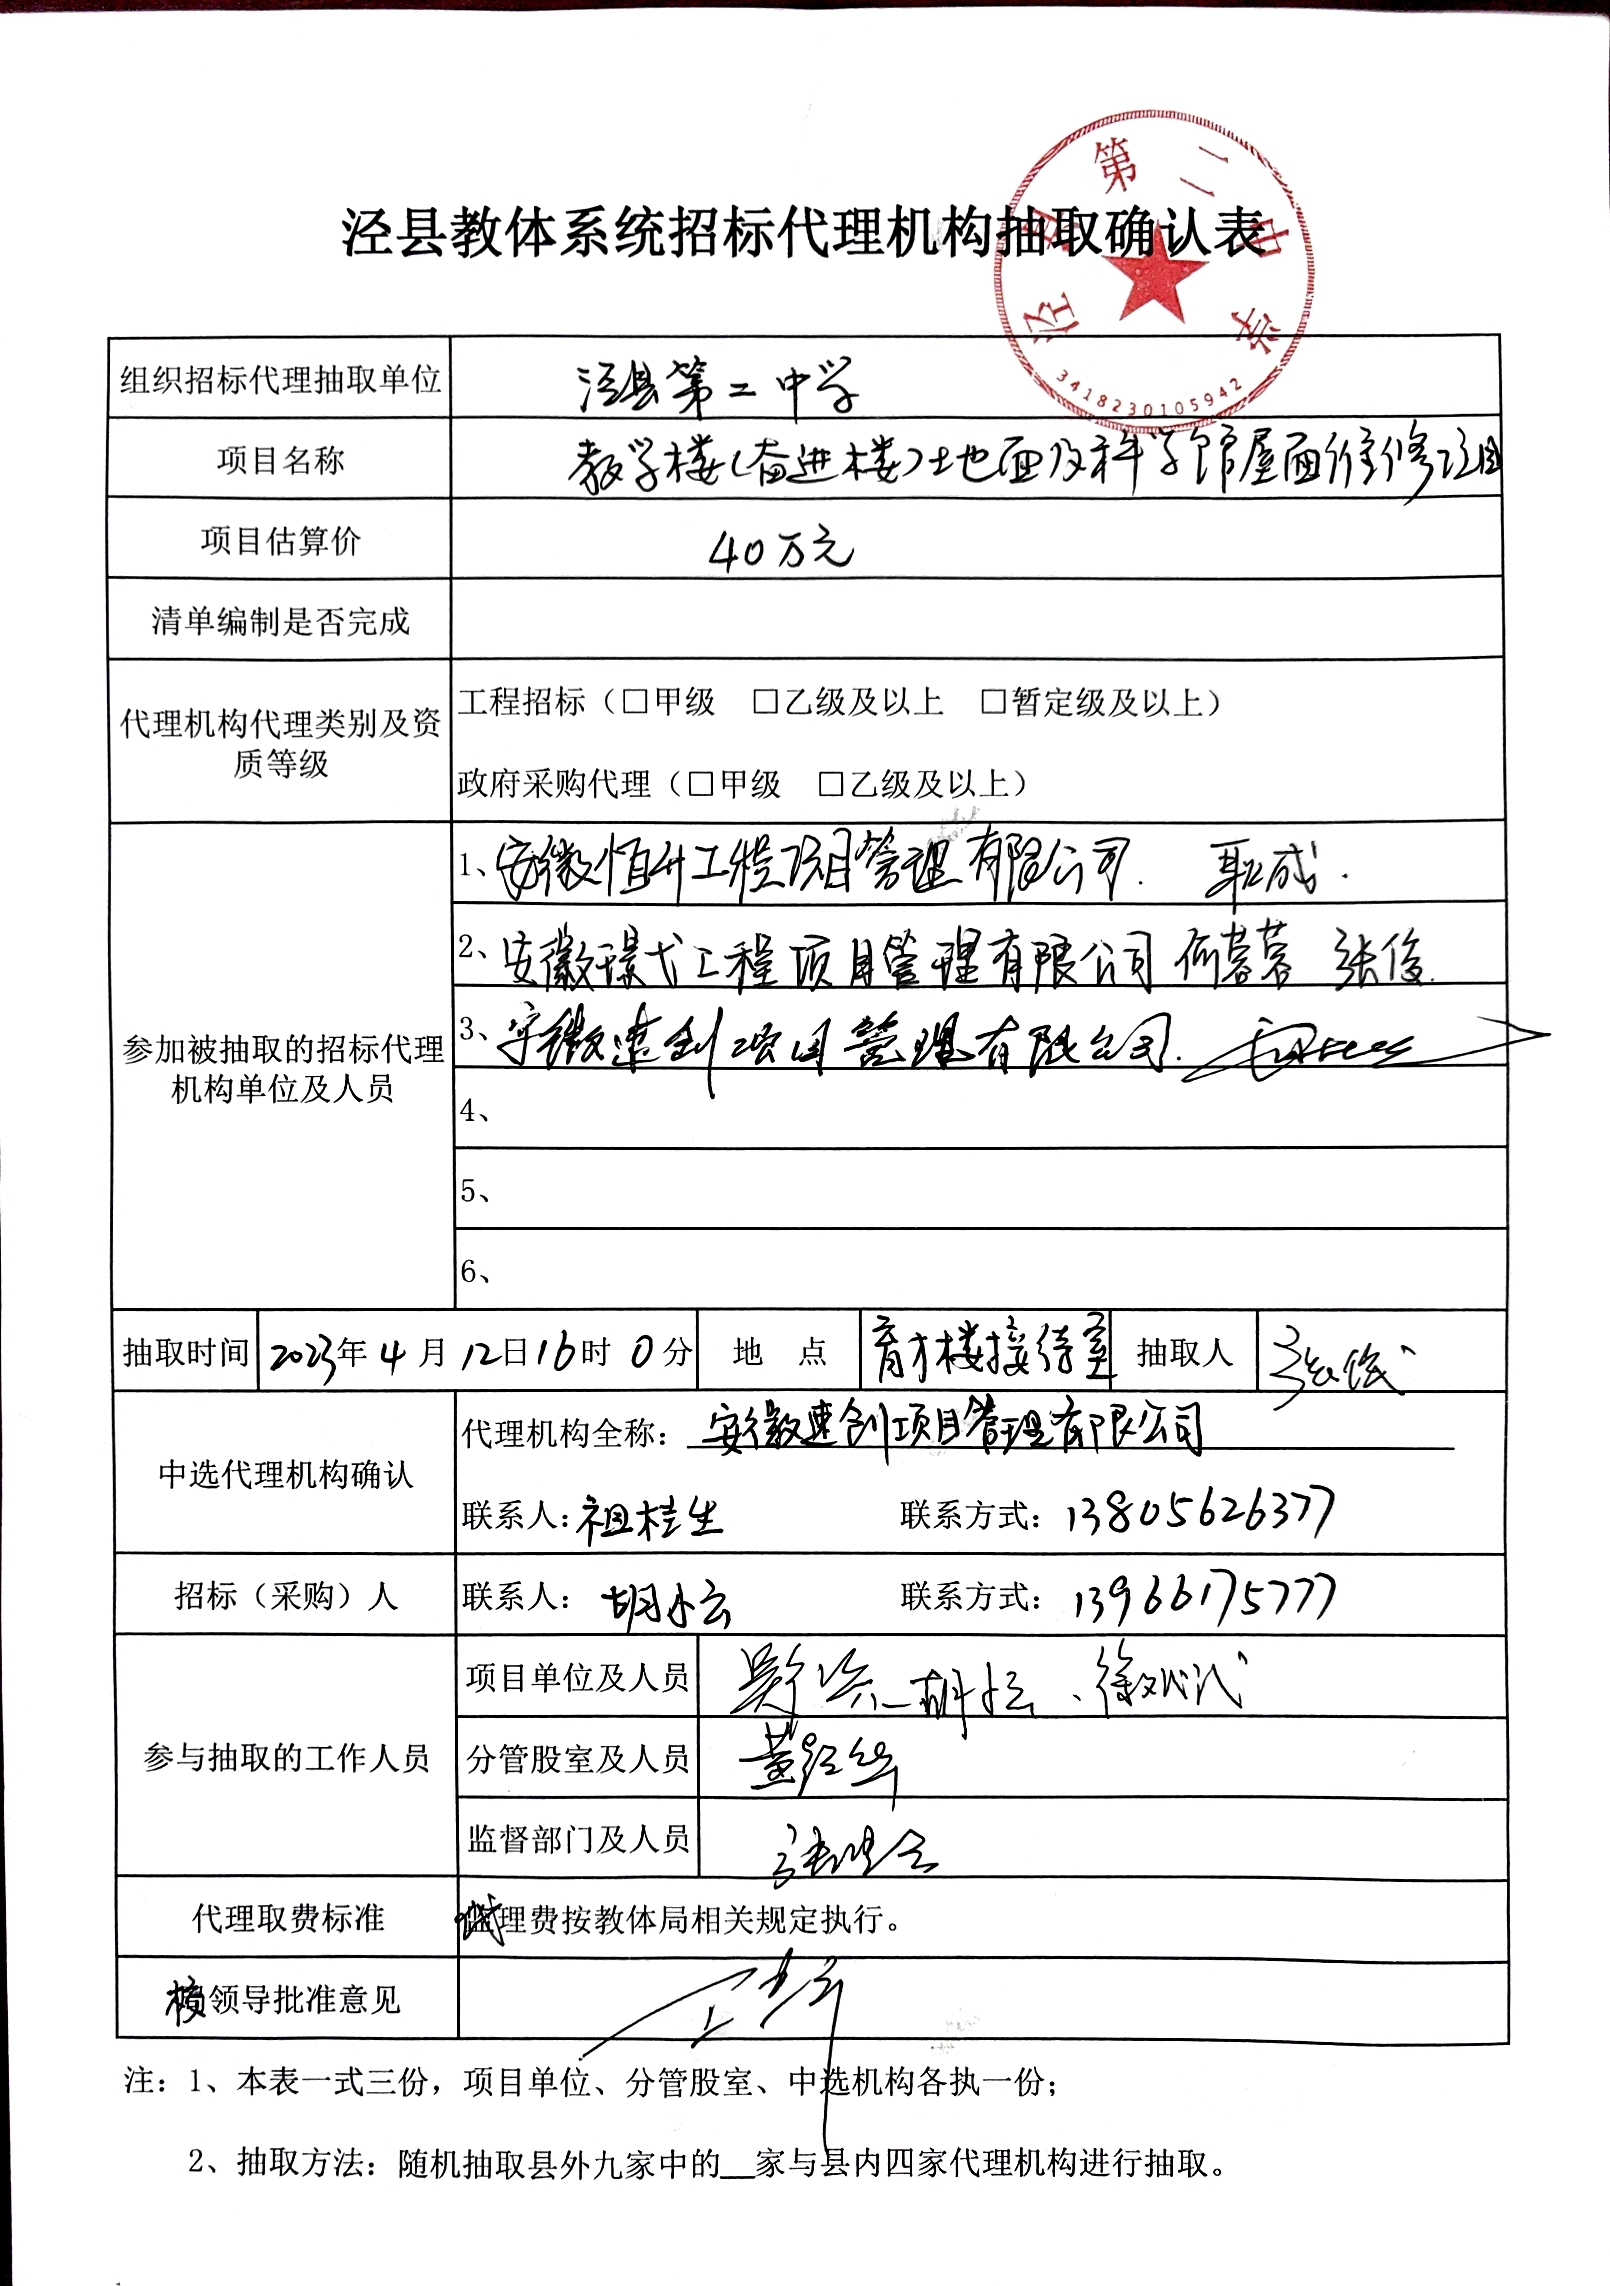 泾县第二中学
3418230105942
泾县教体系统招标代理机构抽取确认表
组织招标代理抽取单位 泾县第二中学
项目名称 教学楼(奋进楼)土地面及科学馆屋面维修项目
项目估算价 40万元
清单编制是否完成
代理机构代理类别及资
质等级
工程招标（□甲级 □乙级及以上 □暂定级及以上）
政府采购代理（□甲级 □乙级及以上）
参加被抽取的招标代理
机构单位及人员
1、安徽恒升工程项目管理有限公司. 耿成.
2、安徽璟弋工程项目管理有限公司 何蓉蓉 张俊
3、安徽建创项目管理有限公司.
4、
5、
6、
抽取时间 2023年4月12日16时0分 地 点 育才楼接待室 抽取人
中选代理机构确认
代理机构全称：安徽建创项目管理有限公司
联系人：祖桂生 联系方式：13805626377
招标（采购）人 联系人：胡小云 联系方式：13966175777
参与抽取的工作人员
项目单位及人员
分管股室及人员
监督部门及人员
代理取费标准 代理费按教体局相关规定执行。
校领导批准意见
注：1、本表一式三份，项目单位、分管股室、中选机构各执一份；
2、抽取方法：随机抽取县外九家中的__家与县内四家代理机构进行抽取。